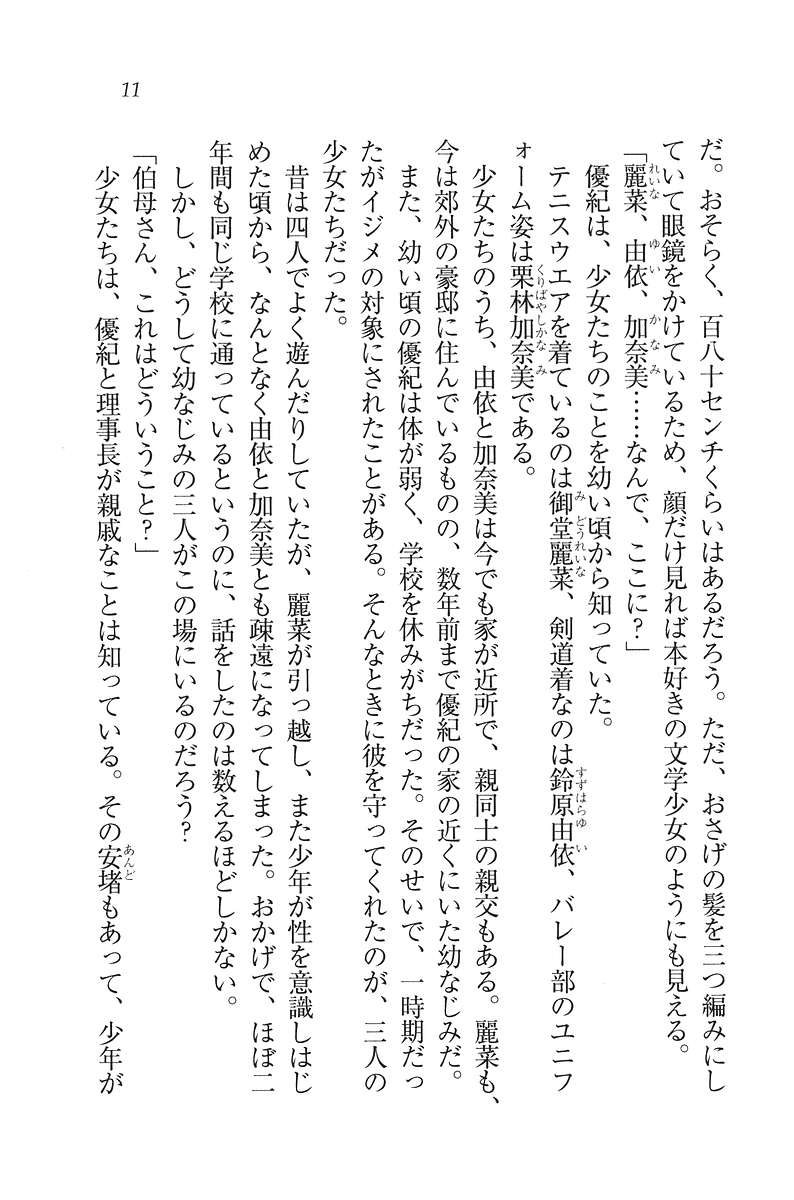 11
だ。おそらく、百八十センチくらいはあるだろう。ただ、おさげの髪を三つ編みにし
ていて眼鏡をかけているため、顔だけ見れば本好きの文学少女のようにも見える。
「麗菜、由依、加奈美……なんで、ここに？」
優紀は、少女たちのことを幼い頃から知っていた。
テニスウエアを着ているのは御堂麗菜、剣道着なのは鈴原由依、バレー部のユニフ
ォーム姿は栗林加奈美である。
少女たちのうち、由依と加奈美は今でも家が近所で、親同士の親交もある。麗菜も、
今は郊外の豪邸に住んでいるものの、数年前まで優紀の家の近くにいた幼なじみだ。
また、幼い頃の優紀は体が弱く、学校を休みがちだった。そのせいで、一時期だっ
たがイジメの対象にされたことがある。そんなときに彼を守ってくれたのが、三人の
少女たちだった。
昔は四人でよく遊んだりしていたが、麗菜が引っ越し、また少年が性を意識しはじ
めた頃から、なんとなく由依と加奈美とも疎遠になってしまった。おかげで、ほぼ二
年間も同じ学校に通っているというのに、話をしたのは数えるほどしかない。
しかし、どうして幼なじみの三人がこの場にいるのだろう？
「伯母さん、これはどういうこと？」
少女たちは、優紀と理事長が親戚なことは知っている。その安堵もあって、少年が